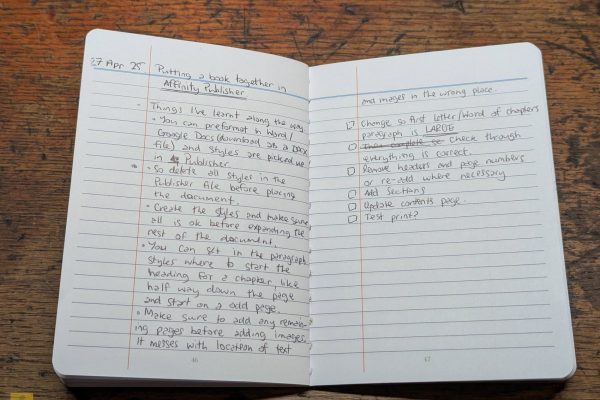 27 Apr 25
Putting a book together in
Affinity Publisher
Things I've learnt along the way.
• You can preformat in Word/
Google Docs (download as a Docx
file) and styles are picked up
in Publisher
• So delete all styles in the
Publisher file before placing
the document.
• Create the styles and make sure
all is ok before expanding the
rest of the document.
• You can set in the paragraph
styles where to start the
heading for a chapter, like
half way down the page
and start on a odd page.
• Make sure to add any remain-
ing pages before adding images.
It messes with location of text
46
and images in the wrong place.
Change so first letter/word of chapters
paragraph is LARGE
Then complete so Check through
everything is correct.
Remove headers and page numbers
or re-add where necessary.
Add Sections
Update contents page.
Test print?
47